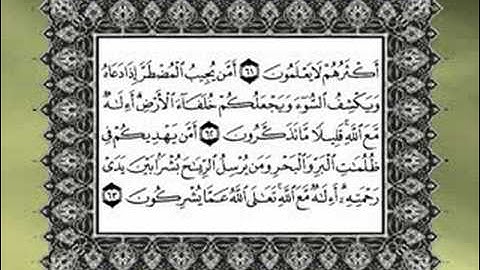 أَكْثَرُهُمْ لَا يَعْلَمُونَ ٦١ أَمَّن يُجِيبُ الْمُضْطَرَّ إِذَا دَعَاهُ
وَيَكْشِفُ السُّوٓءَ وَيَجْعَلُكُمْ خُلَفَآءَ الْأَرْضِ أَءِلَٰهٌ
مَّعَ اللَّهِ قَلِيلًا مَّا تَذَكَّرُونَ ٦٢ أَمَّن يَهْدِيكُمْ فِى
ظُلُمَٰتِ الْبَرِّ وَالْبَحْرِ وَمَن يُرْسِلُ الرِّيَٰحَ بُشْرًۢا بَيْنَ يَدَىْ
رَحْمَتِهِۦٓ أَءِلَٰهٌ مَّعَ اللَّهِ تَعَٰلَى اللَّهُ عَمَّا يُشْرِكُونَ ٦٣